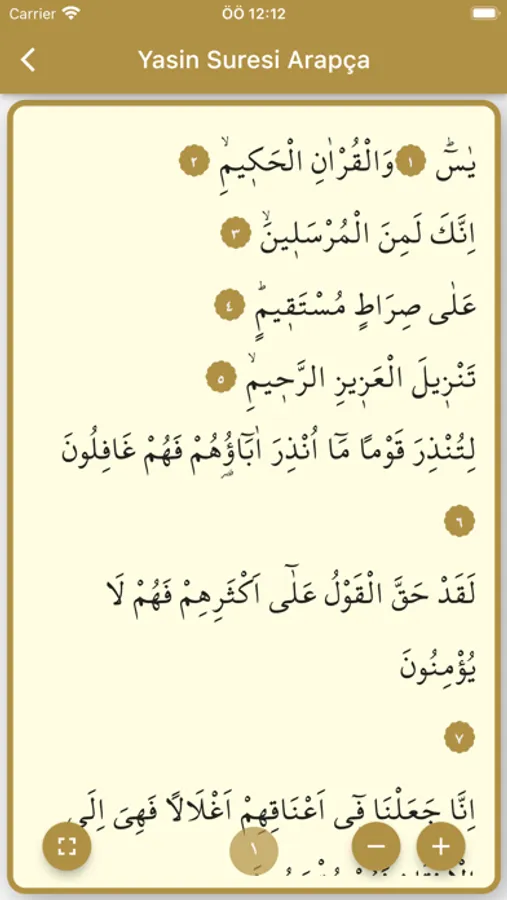 Carrier ÖÖ 12:12
Yasin Suresi Arapça
يٰسٓ ۜ ١ وَالْقُرْاٰنِ الْحَك۪يمِۙ ٢
اِنَّكَ لَمِنَ الْمُرْسَل۪ينَۙ ٣
عَلٰى صِرَاطٍ مُسْتَق۪يمٍۜ ٤
تَنْز۪يلَ الْعَز۪يزِ الرَّح۪يمِۙ ٥
لِتُنْذِرَ قَوْمًا مَٓا اُنْذِرَ اٰبَٓاؤُ۬هُمْ فَهُمْ غَافِلُونَ
٦
لَقَدْ حَقَّ الْقَوْلُ عَلٰٓى اَكْثَرِهِمْ فَهُمْ لَا
يُؤْمِنُونَ
٧
اِنَّا جَعَلْنَا ف۪ٓي اَعْنَاقِهِمْ اَغْلَالًا فَهِيَ اِلَى
١